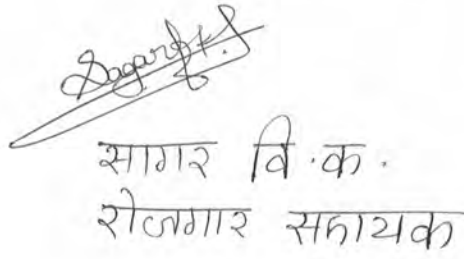 Sagar B.K.
सागर वि.क.
रोजगार सहायक